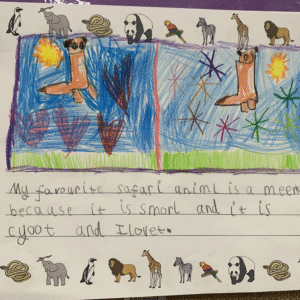 My favourite safari animl is a meer
because it is smorl and it is
cyoot and I love t.